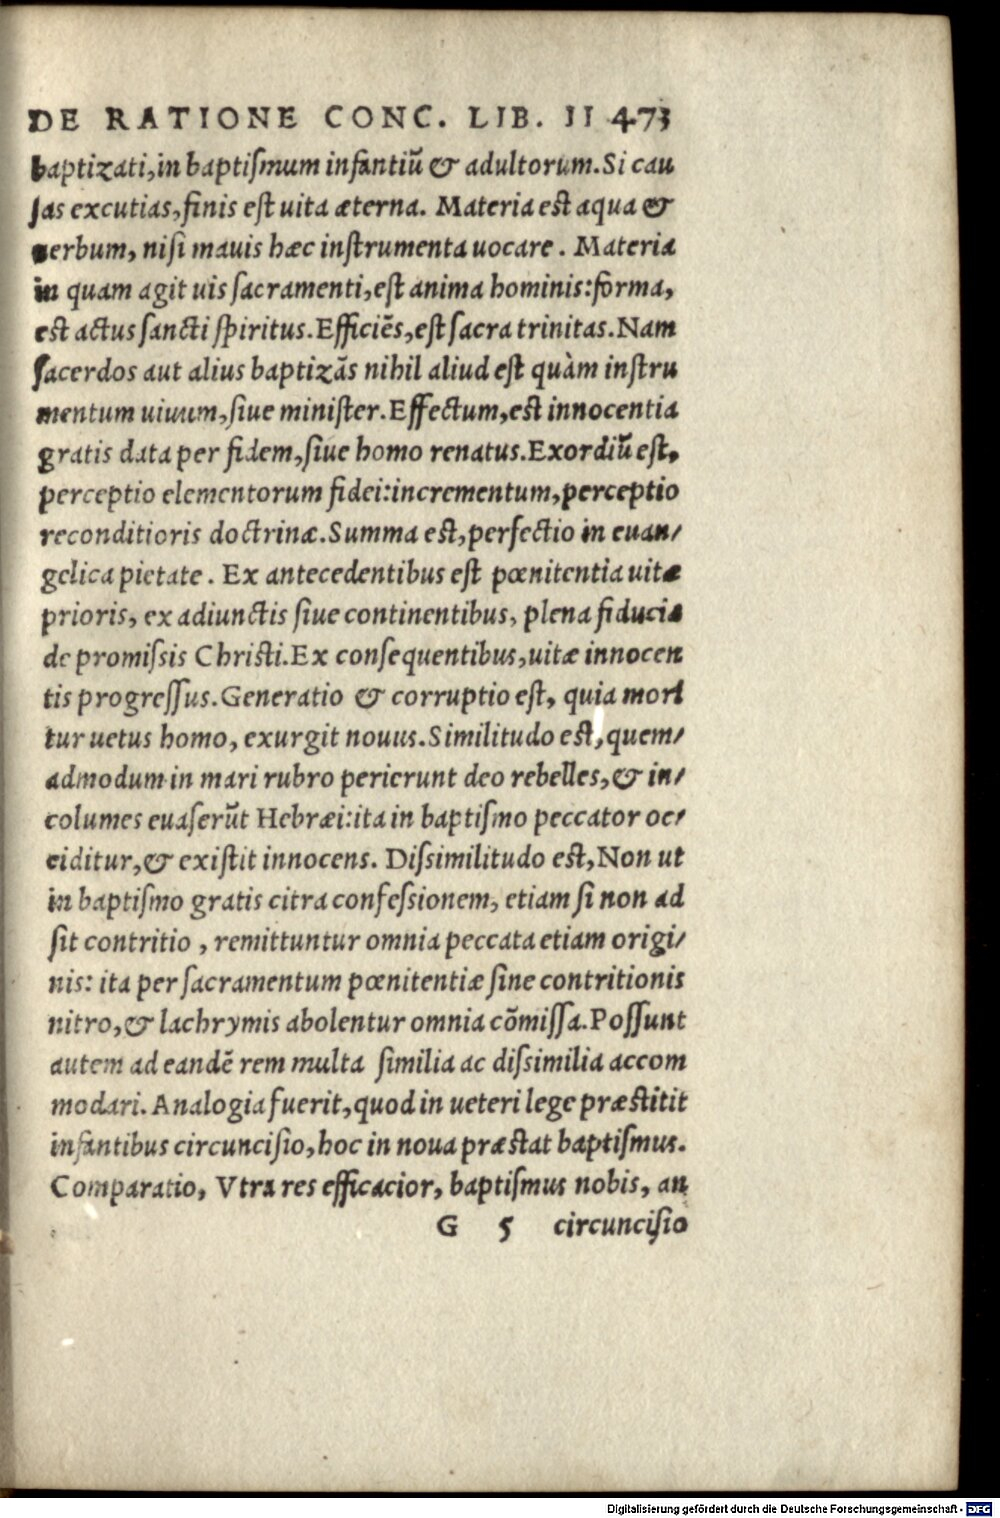 DE RATIONE CONC. LIB. II 473
baptizati, in baptiſmum infantiũ & adultorum. Si cau
ſas excutias, finis eſt uita æterna. Materia eſt aqua &
uerbum, niſi mauis hæc inſtrumenta uocare. Materia
in quam agit uis ſacramenti, eſt anima hominis: forma,
eſt actus ſancti ſpiritus. Efficiẽs, eſt ſacra trinitas. Nam
ſacerdos aut alius baptizãs nihil aliud eſt quàm inſtru
mentum uiuum, ſiue miniſter. Effectum, eſt innocentia
gratis data per fidem, ſiue homo renatus. Exordiũ eſt,
perceptio elementorum fidei: incrementum, perceptio
reconditioris doctrinæ. Summa eſt, perfectio in euan/
gelica pietate. Ex antecedentibus eſt pœnitentia uitæ
prioris, ex adiunctis ſiue continentibus, plena fiducia
de promiſsis Chriſti. Ex conſequentibus, uitæ innocen
tis progreſſus. Generatio & corruptio eſt, quia mori
tur uetus homo, exurgit nouus. Similitudo eſt, quem/
admodum in mari rubro perierunt deo rebelles, & in/
columes euaſerũt Hebræi: ita in baptiſmo peccator oc/
ciditur, & exiſtit innocens. Diſsimilitudo eſt, Non ut
in baptiſmo gratis citra confeſsionem, etiam ſi non ad
ſit contritio, remittuntur omnia peccata etiam origi/
nis: ita per ſacramentum pœnitentiæ ſine contritionis
nitro, & lachrymis abolentur omnia cõmiſſa. Poſſunt
autem ad eandẽ rem multa ſimilia ac diſsimilia accom
modari. Analogia fuerit, quod in ueteri lege præſtitit
infantibus circunciſio, hoc in noua præſtat baptiſmus.
Comparatio, Vtra res efficacior, baptiſmus nobis, an
G 5 circunciſio
Digitalisierung gefördert durch die Deutsche Forschungsgemeinschaft - DFG